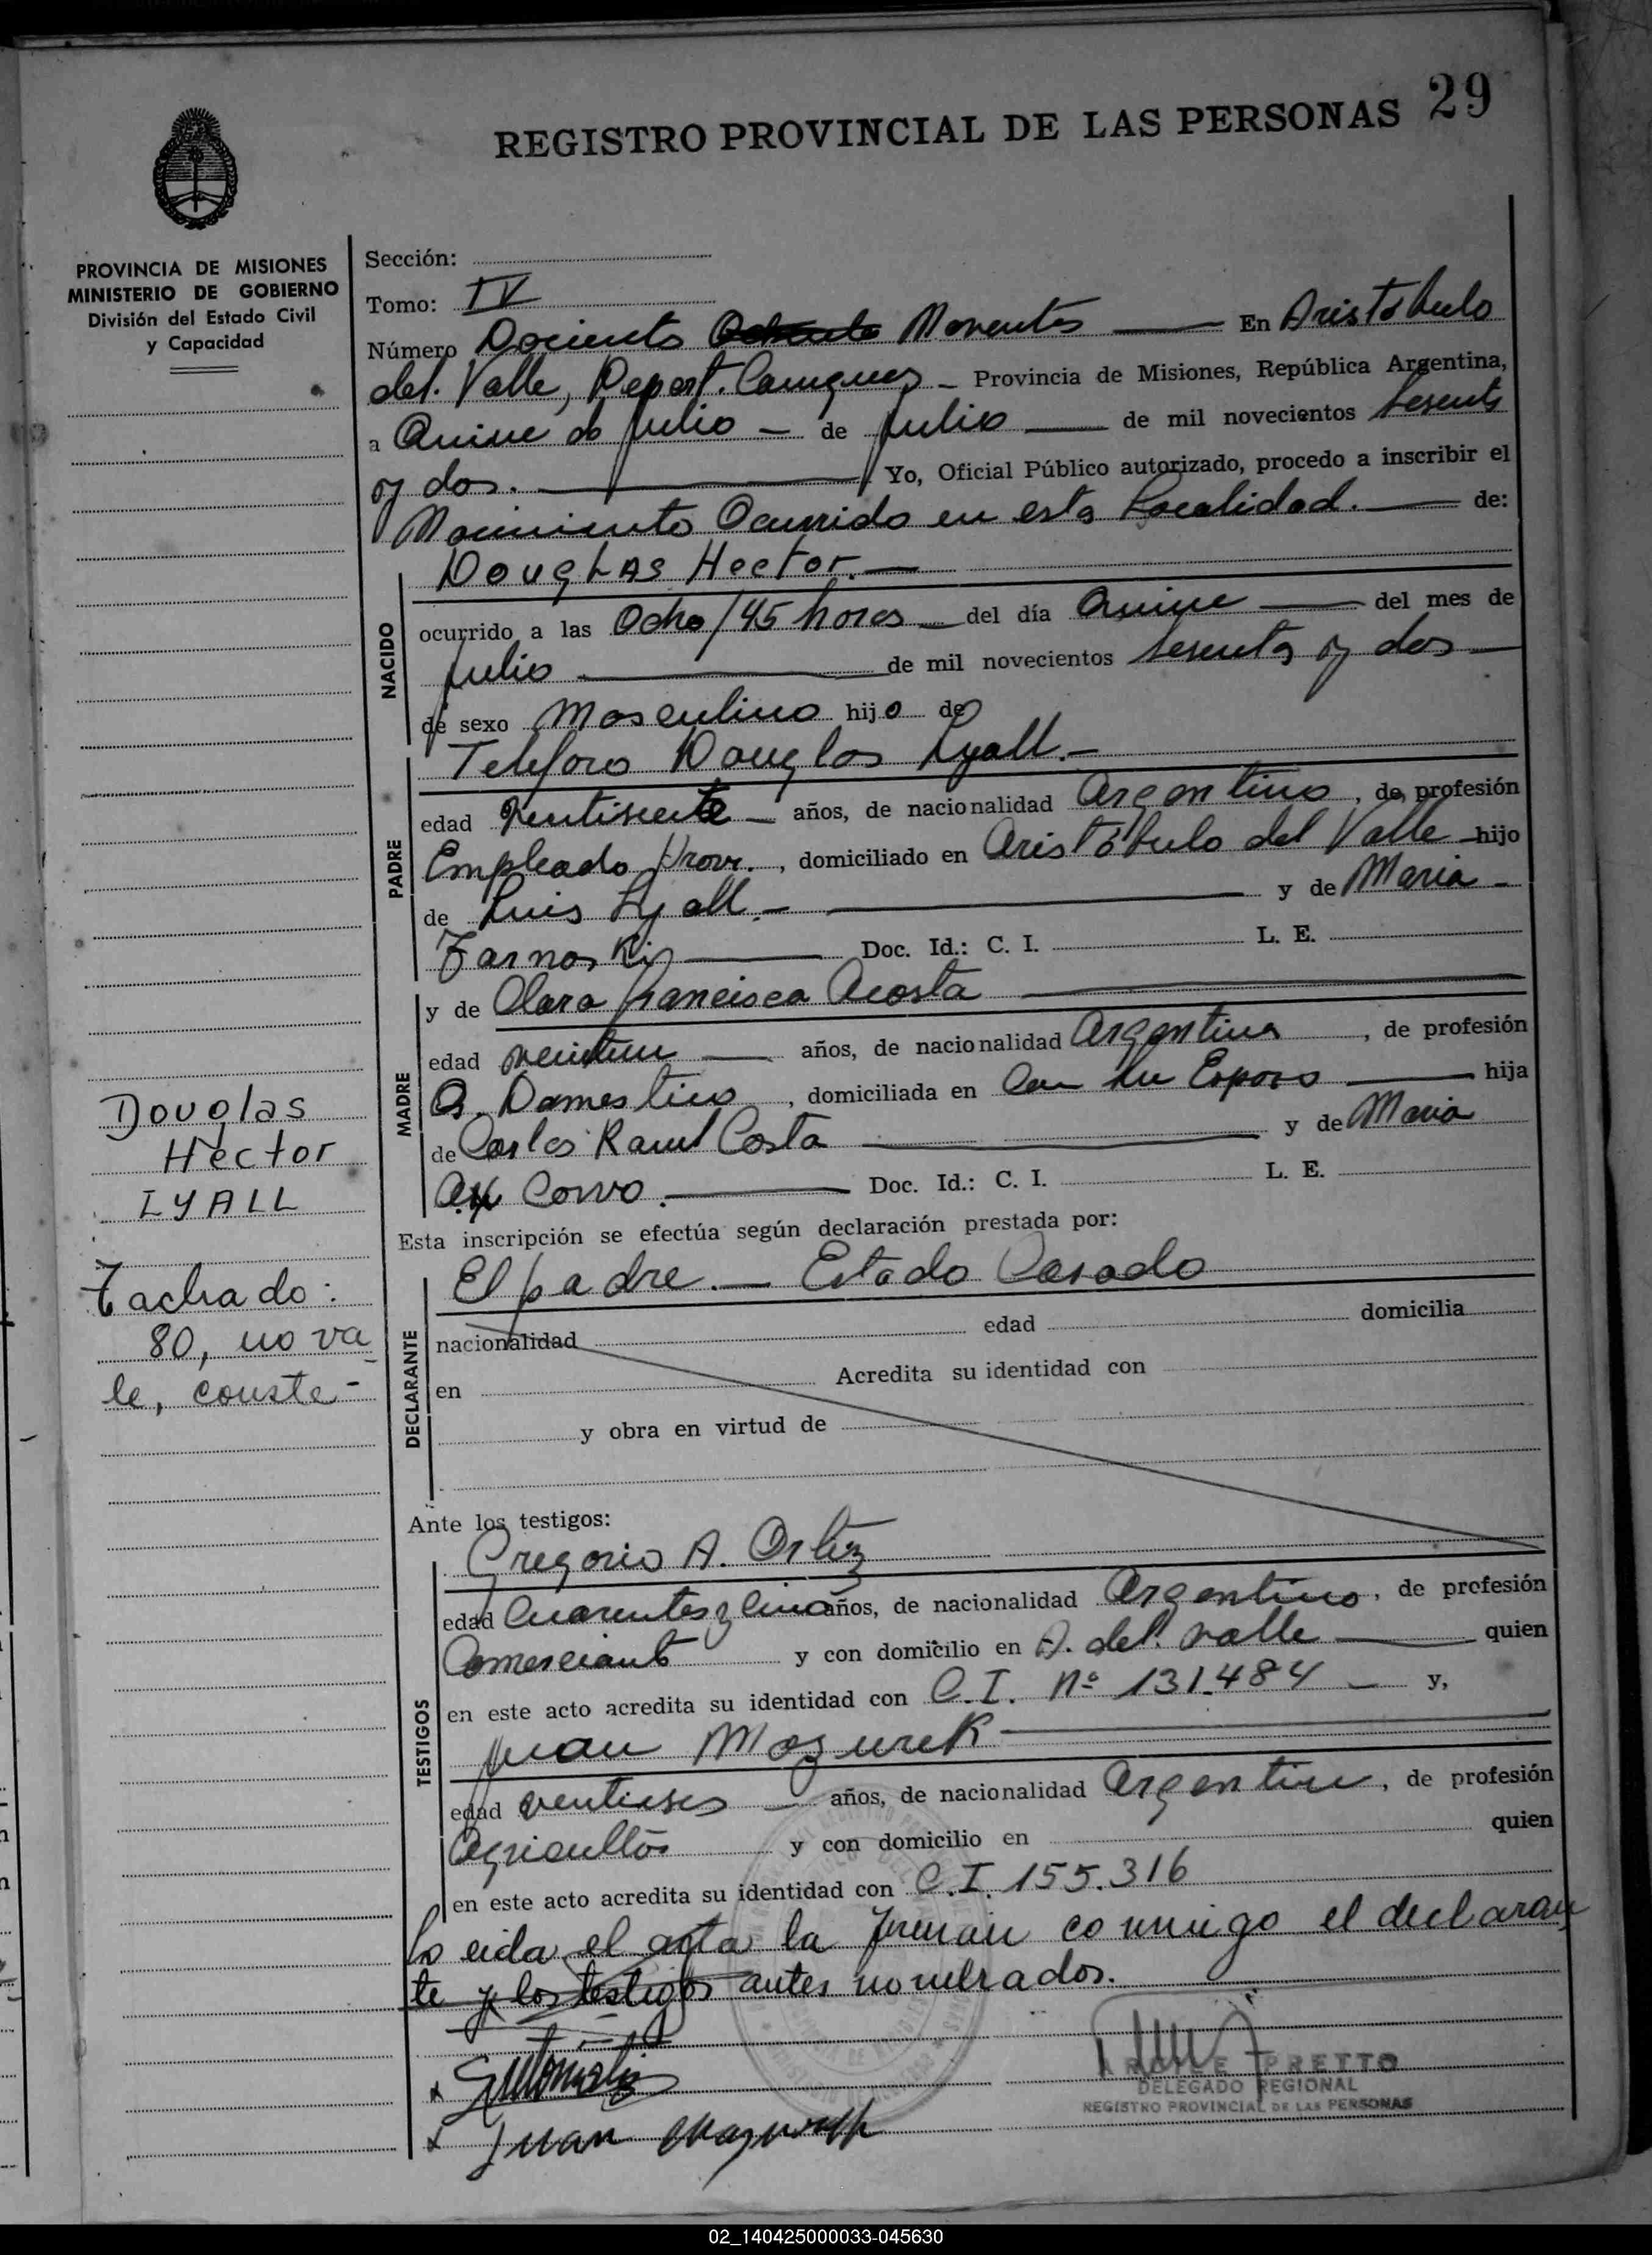 REGISTRO PROVINCIAL DE LAS PERSONAS 29
PROVINCIA DE MISIONES
MINISTERIO DE GOBIERNO
División del Estado Civil
y Capacidad
Sección:
Tomo: IV
Número Dociento Noventa En Aristóbulo
del Valle, Depart. Cainguas Provincia de Misiones, República Argentina,
a Quince de Julio de Julio de mil novecientos Sesenta
y dos. Yo, Oficial Público autorizado, procedo a inscribir el
Nacimiento Ocurrido en esta Localidad. de:
Douglas Hector.
NACIDO
ocurrido a las Ocho/45 horas del día Quince del mes de
Julio de mil novecientos sesenta y dos
de sexo Masculino hijo de
Telesforo Douglas Lyall.
PADRE
edad años, de nacionalidad Argentino, de profesión
Empleado Prov., domiciliado en Aristóbulo del Valle hijo
de Luis Lyall. y de Maria
Doc. Id.: C. I. L. E.
y de Clara Francisca Acosta
MADRE
edad años, de nacionalidad Argentina, de profesión
Q. Domestico, domiciliada en Con su Esposo hija
de Carlos Raul Costa y de Maria
Corvo. Doc. Id.: C. I. L. E.
Esta inscripción se efectúa según declaración prestada por:
El padre. Estado Casado
DECLARANTE
nacionalidad edad domicilia
en Acredita su identidad con
y obra en virtud de
Douglas
Hector
LYALL
Tachado:
80, no va
le, conste-
Ante los testigos:
Gregorio A. Ortiz
TESTIGOS
edad Cuarenta y años, de nacionalidad Argentino, de profesión
Comerciante y con domicilio en A. del Valle quien
en este acto acredita su identidad con C.I. Nº 131.484 y,
Juan Mazurek
edad ventiseis años, de nacionalidad Argentino, de profesión
Agricultor y con domicilio en quien
en este acto acredita su identidad con C.I. 155.316
Leida el acta la firman conmigo el declaran
te y los testigos antes nombrados.
PRETTO
DELEGADO REGIONAL
REGISTRO PROVINCIAL DE LAS PERSONAS
Juan
02_140425000033-045630